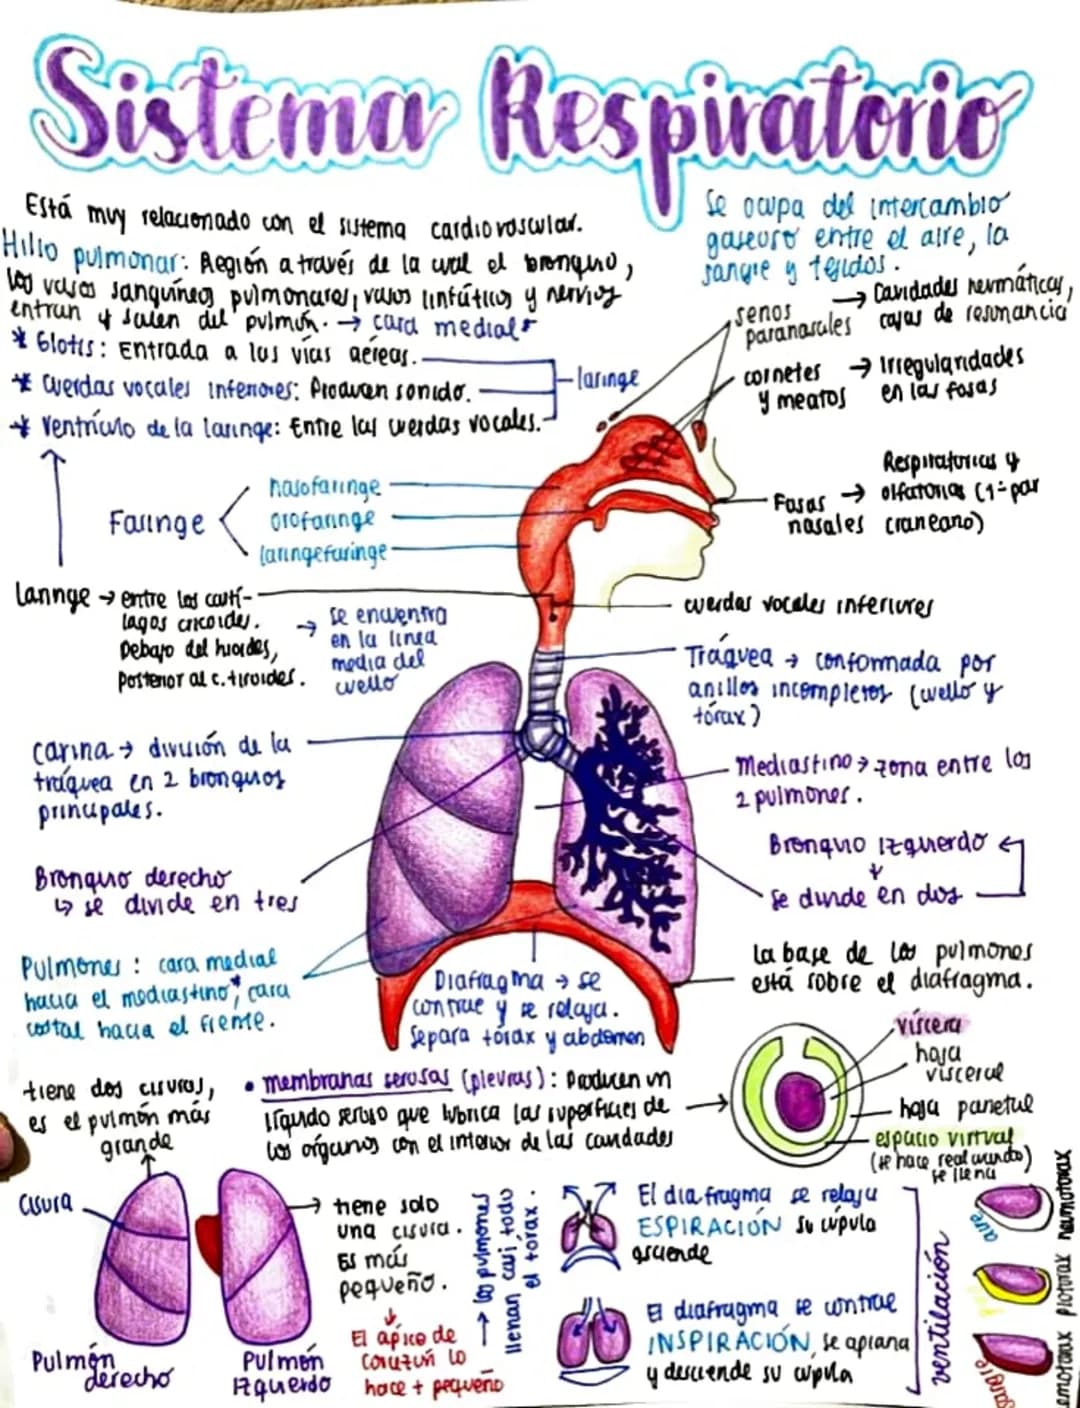 Sistema Respiratorio
Está muy relacionado con el sistema cardiovascular.
Hilio pulmonar: Región a través de la cual el bronquio,
los vasos sanguíneos pulmonares, vasos linfáticos y nervios
entran y salen del pulmón. → cara medial*
* Glotis: Entrada a las vías aéreas.
* Cuerdas vocales inferiores: Producen sonido.
* Ventrículo de la laringe: Entre las cuerdas vocales.
laringe
Se ocupa del intercambio
gaseoso entre el aire, la
sangre y tejidos.
senos
paranasales
→ Cavidades neumáticas,
cajas de resonancia
cornetes
y meatos
→ Irregularidades
en las fosas
Fosas
nasales
→ Respiratorias y
olfatorias (1º par
craneano)
Faringe
nasofaringe
orofaringe
laringofaringe
Laringe → entre los cartí-
lagos cricoides.
Debajo del hioides,
Posterior al c. tiroides.
→ se encuentra
en la línea
media del
cuello
cuerdas vocales inferiores
Tráquea → conformada por
anillos incompletos (cuello y
tórax)
carina → división de la
tráquea en 2 bronquios
principales.
Mediastino → zona entre los
2 pulmones.
Bronquio derecho
↳ se divide en tres
Bronquio Izquierdo
↓
se divide en dos
Pulmones: cara medial
hacia el mediastino*, cara
costal hacia el frente.
Diafragma → se
contrae y se relaja.
Separa tórax y abdomen
la base de los pulmones
está sobre el diafragma.
• membranas serosas (pleuras): Producen un
líquido seroso que lubrica las superficies de
los órganos con el interior de las cavidades
víscera
hoja
visceral
hoja parietal
espacio virtual
(se hace real cuando)
se llena
tiene dos cisuras,
es el pulmón más
grande
cisura
Pulmón
derecho
Pulmón
Izquierdo
→ tiene solo
una cisura.
Es más
pequeño.
El ápice de
corazón lo
hace + pequeño
→ los pulmones
llenan casi todo
el tórax.
El diafragma se relaja
ESPIRACIÓN su cúpula
asciende
El diafragma se contrae
INSPIRACIÓN, se aplana
y desciende su cúpula
ventilación
aire
neumotorax
piotorax
sangre
emotorax